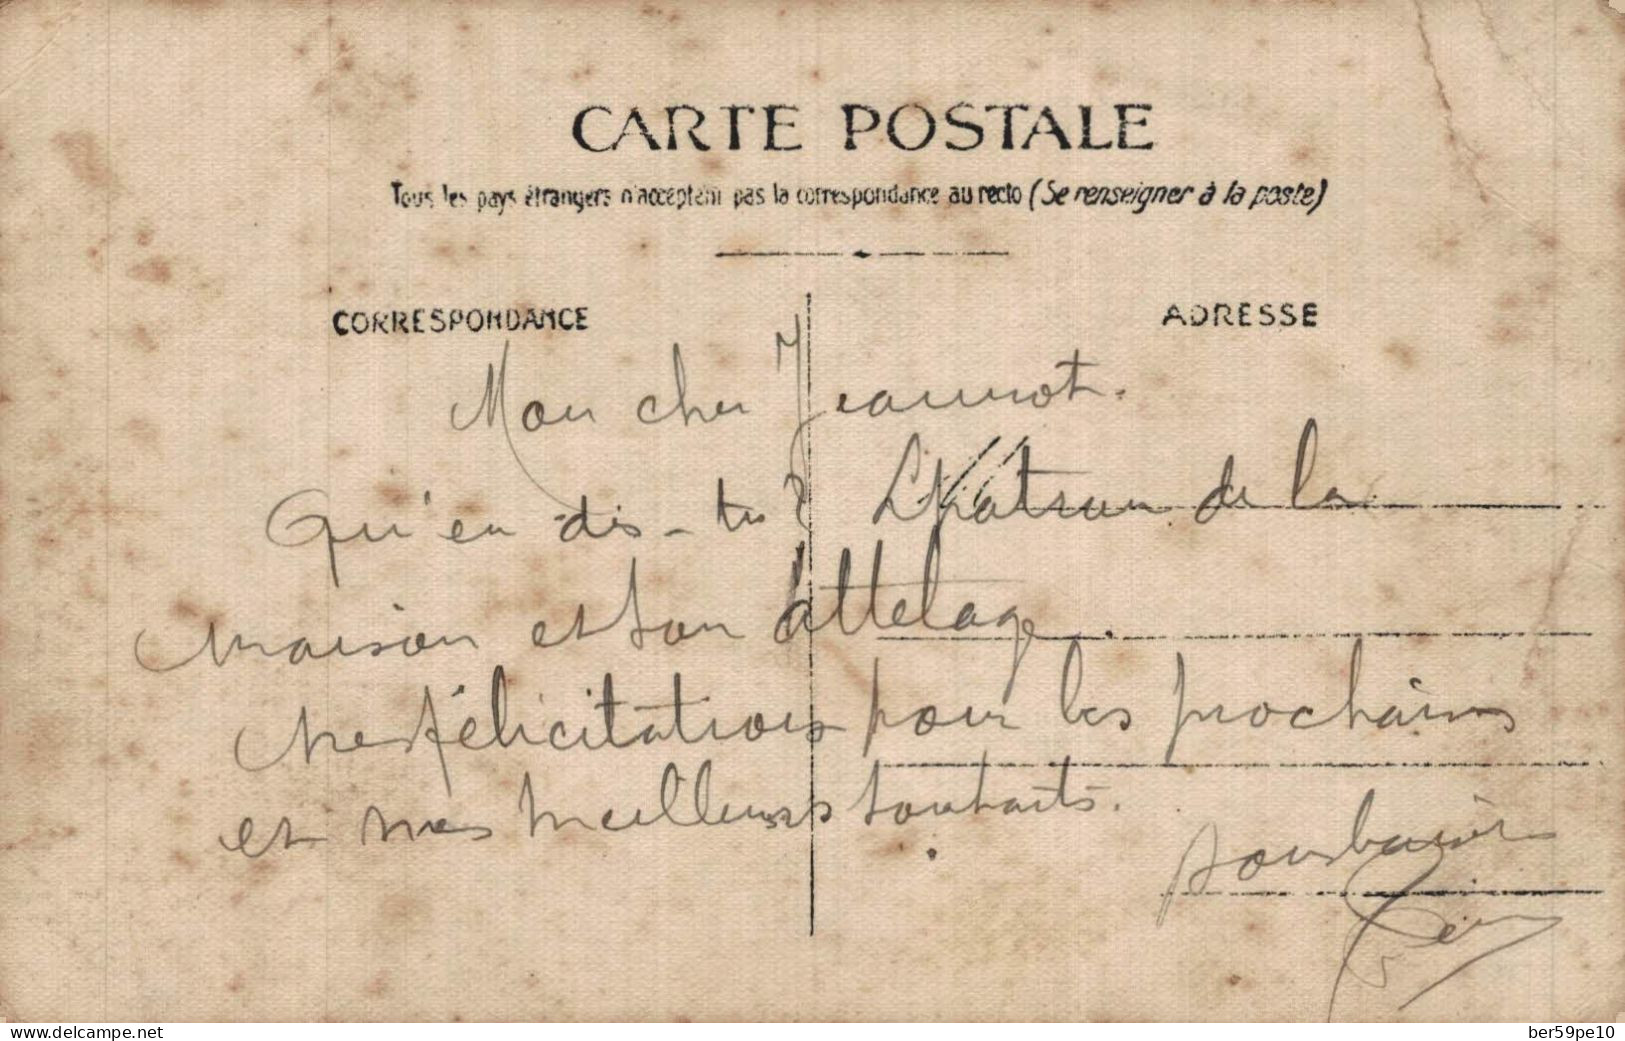 CARTE POSTALE
Tous les pays étrangers n'acceptent pas la correspondance au recto (Se renseigner à la poste)
CORRESPONDANCE
ADRESSE
Mon cher Jeannot.
Qu'en dis-tu? L patron de la
maison et son attelage.
mes félicitations pour les prochains
et mes meilleurs souhaits.
delcampe.net
ber59pe10